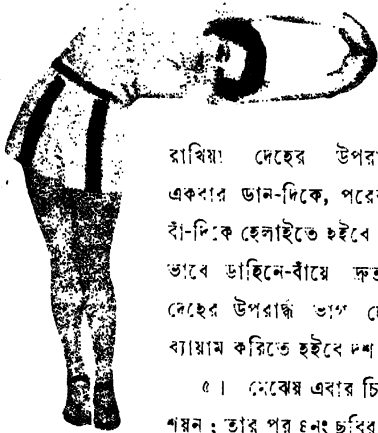 রাখিয়া দেহের উপরা
একবার ডান-দিকে, পরে
বাঁ-দিকে হেলাইতে হইবে
ভাবে ডাহিনে-বাঁয়ে দ্রুত
দেহের উপরার্দ্ধ ভাগ হে
ব্যায়াম করিতে হইবে দশ
৫। মেঝেয় এবার চি
শয়ন ; তার পর ৪নং ছবির